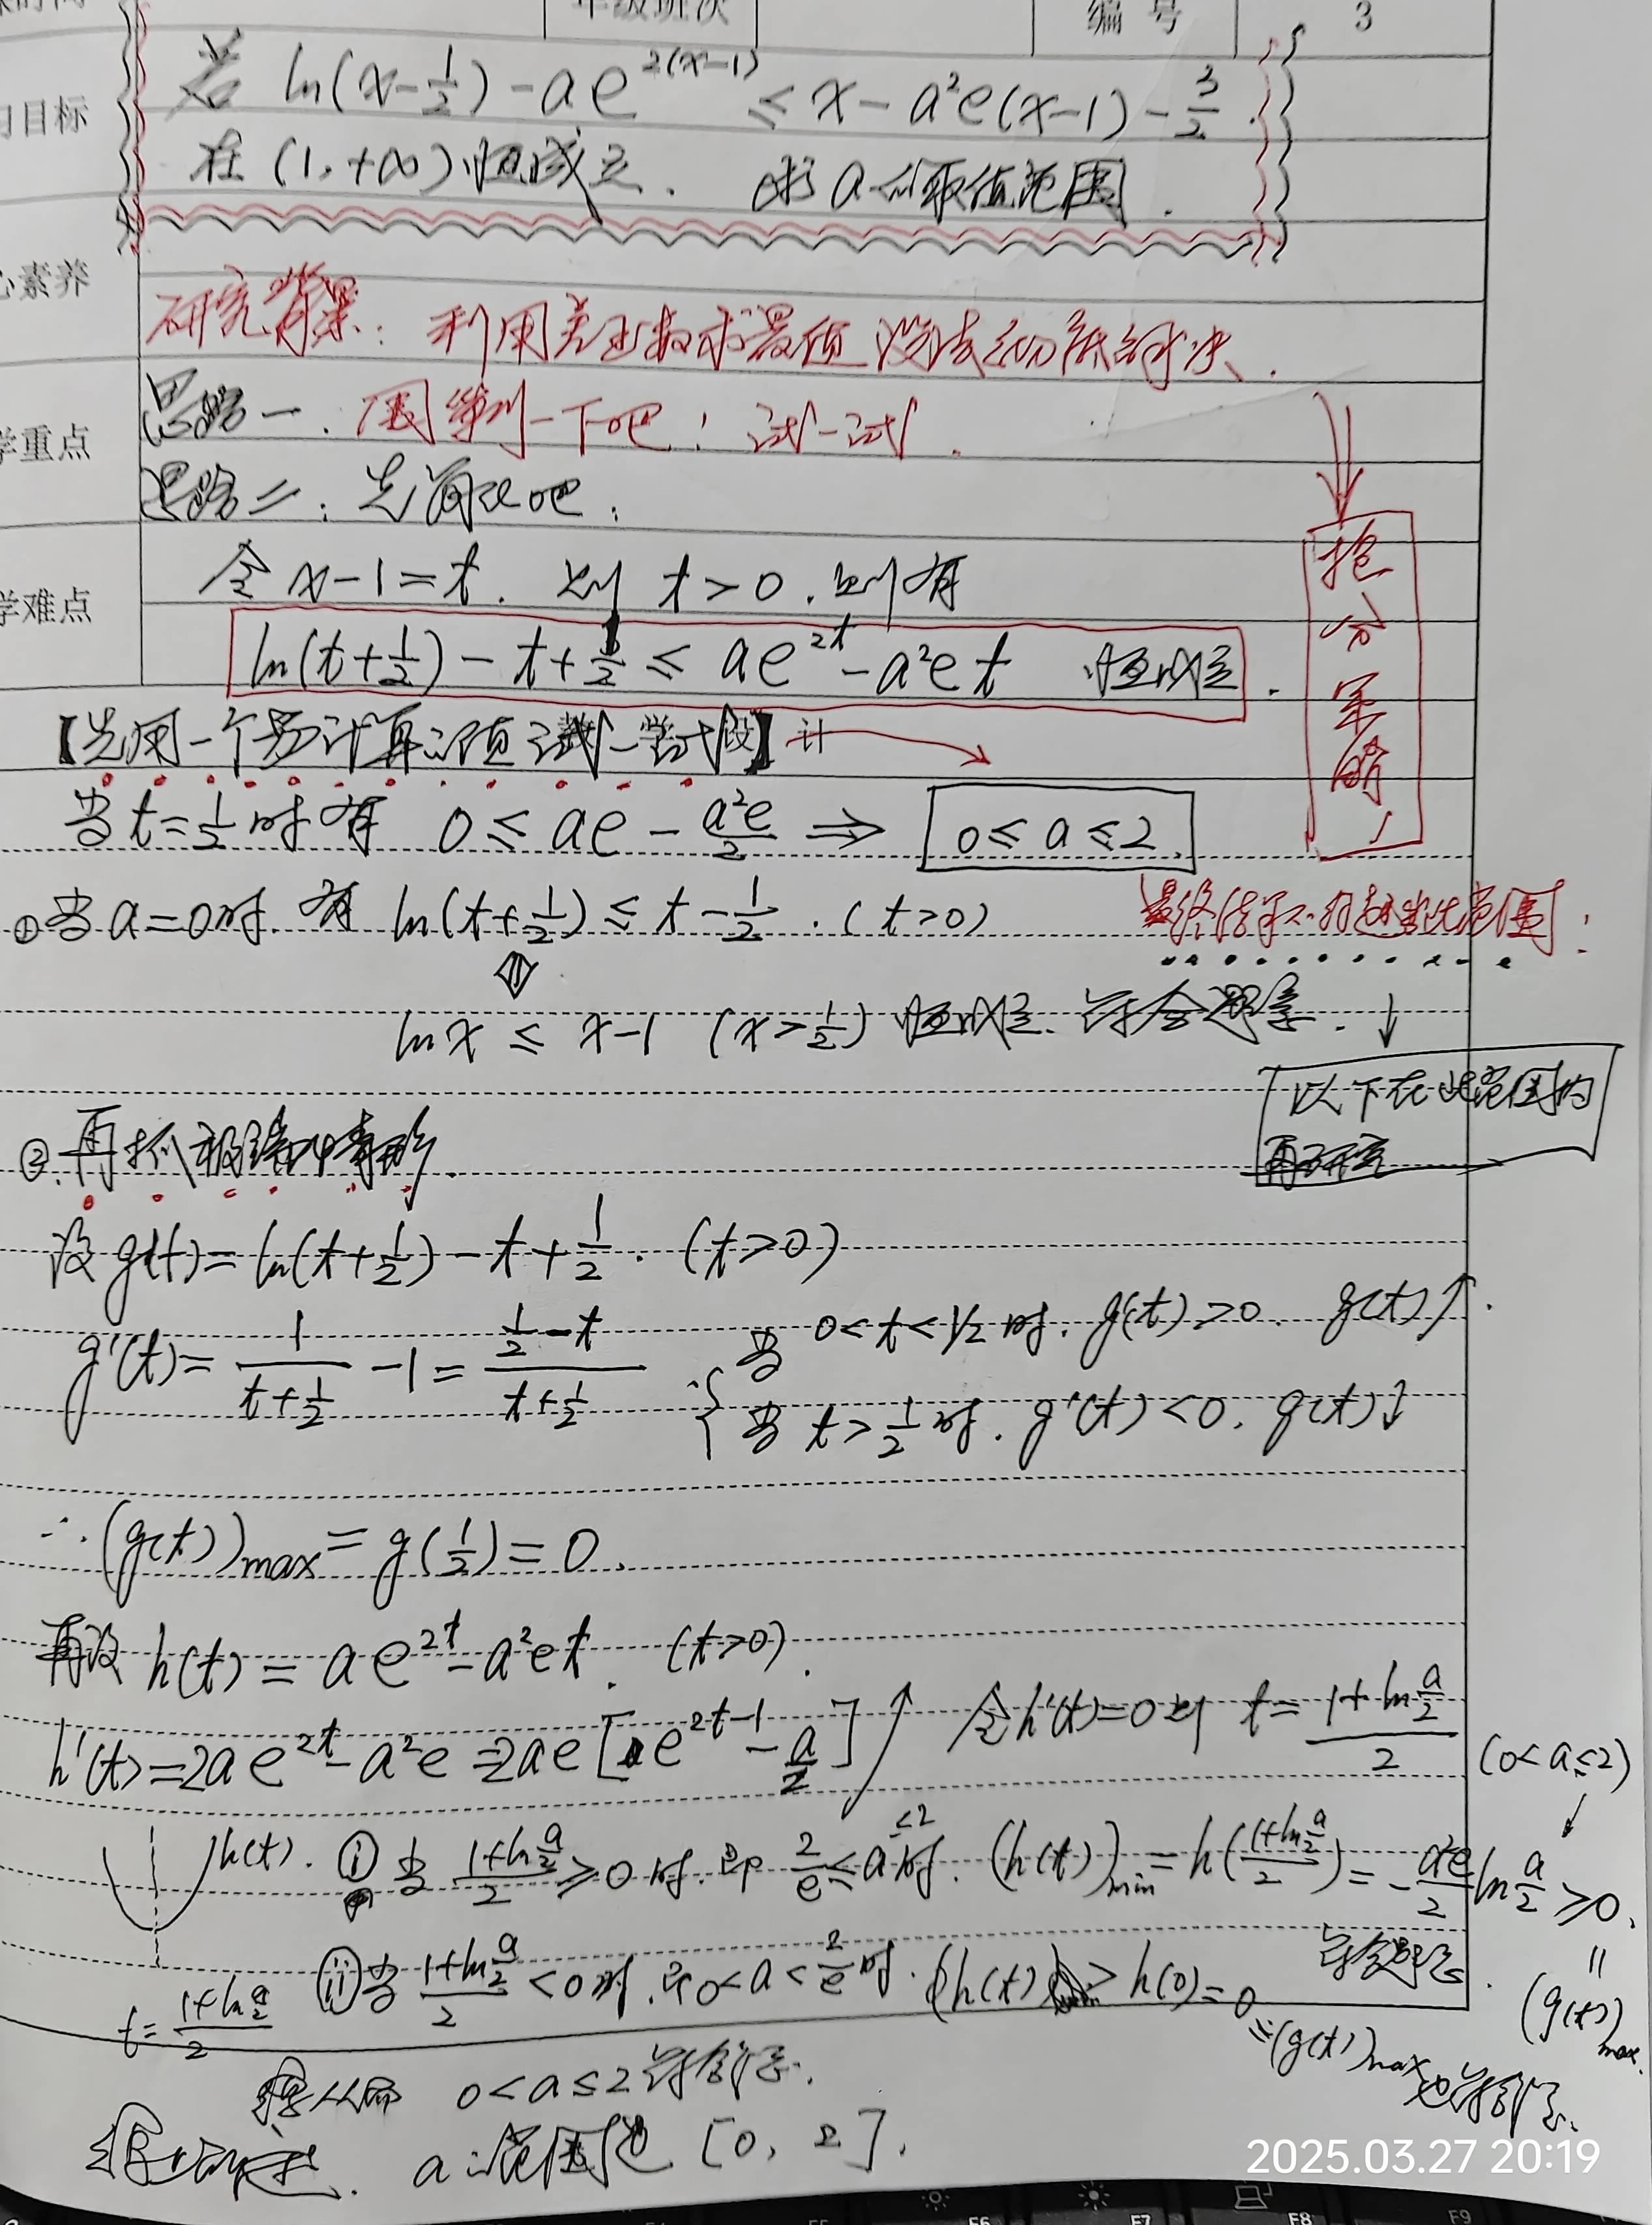 年级班次 编号 3
若 ln(x-1/2) - ae^{2(x-1)} ≤ x - a²e(x-1) - 3/2.
习目标
在 (1,+∞) 恒成立. 求 a 的取值范围.
心素养
研究背景: 利用 求最值 没法 解决.
学重点
思路一. 一下吧! 试一试.
思路二: 先简化吧:
令 x-1=t. 则 t>0. 则有
学难点
ln(t+1/2) - t + 1/2 ≤ ae^{2t} - a²et 恒成立.
抢分策略!
【先用一个易计算的值试一试】
设计
当 t=1/2 时 有 0 ≤ ae - a²e/2 ⇒ 0≤a≤2.
最终结果不的超出此范围!
①当 a=0 时. 有 ln(t+1/2) ≤ t-1/2. (t>0)
lnx ≤ x-1 (x>1/2) 恒成立. 符合题意. ↓
以下在此范围内
再研究
②.再抓极端情形.
设 g(t)= ln(t+1/2) - t + 1/2. (t>0)
g'(t)= 1/(t+1/2) - 1 = (1/2-t)/(t+1/2)
当 0<t<1/2 时. g'(t)>0. g(t)↑.
当 t>1/2 时. g'(t)<0. g(t)↓
∴ (g(t))max = g(1/2) = 0.
再设 h(t) = ae^{2t} - a²et. (t>0).
h'(t)=2ae^{2t} - a²e = 2ae[e^{2t-1} - a/2]↗ 令h'(t)=0 则 t= (1+ln a/2)/2 (0<a≤2)
h(t). ⓘ 当 (1+ln a/2)/2 ≥0 时. 即 2/e ≤ a ≤2 时. (h(t))min = h((1+ln a/2)/2) = -a²e/2 ln a/2 ≥0.
符合题意. = (g(t))max.
t= (1+ln a/2)/2
ⅱ 当 (1+ln a/2)/2 <0 时. 即 0<a<2/e 时. h(t) > h(0)= 0
≤(g(t))max 也符合题意.
从而 0<a≤2 符合题意.
综上所述. a的范围是 [0, 2].
2025.03.27 20:19
F6 F7 F8 F9